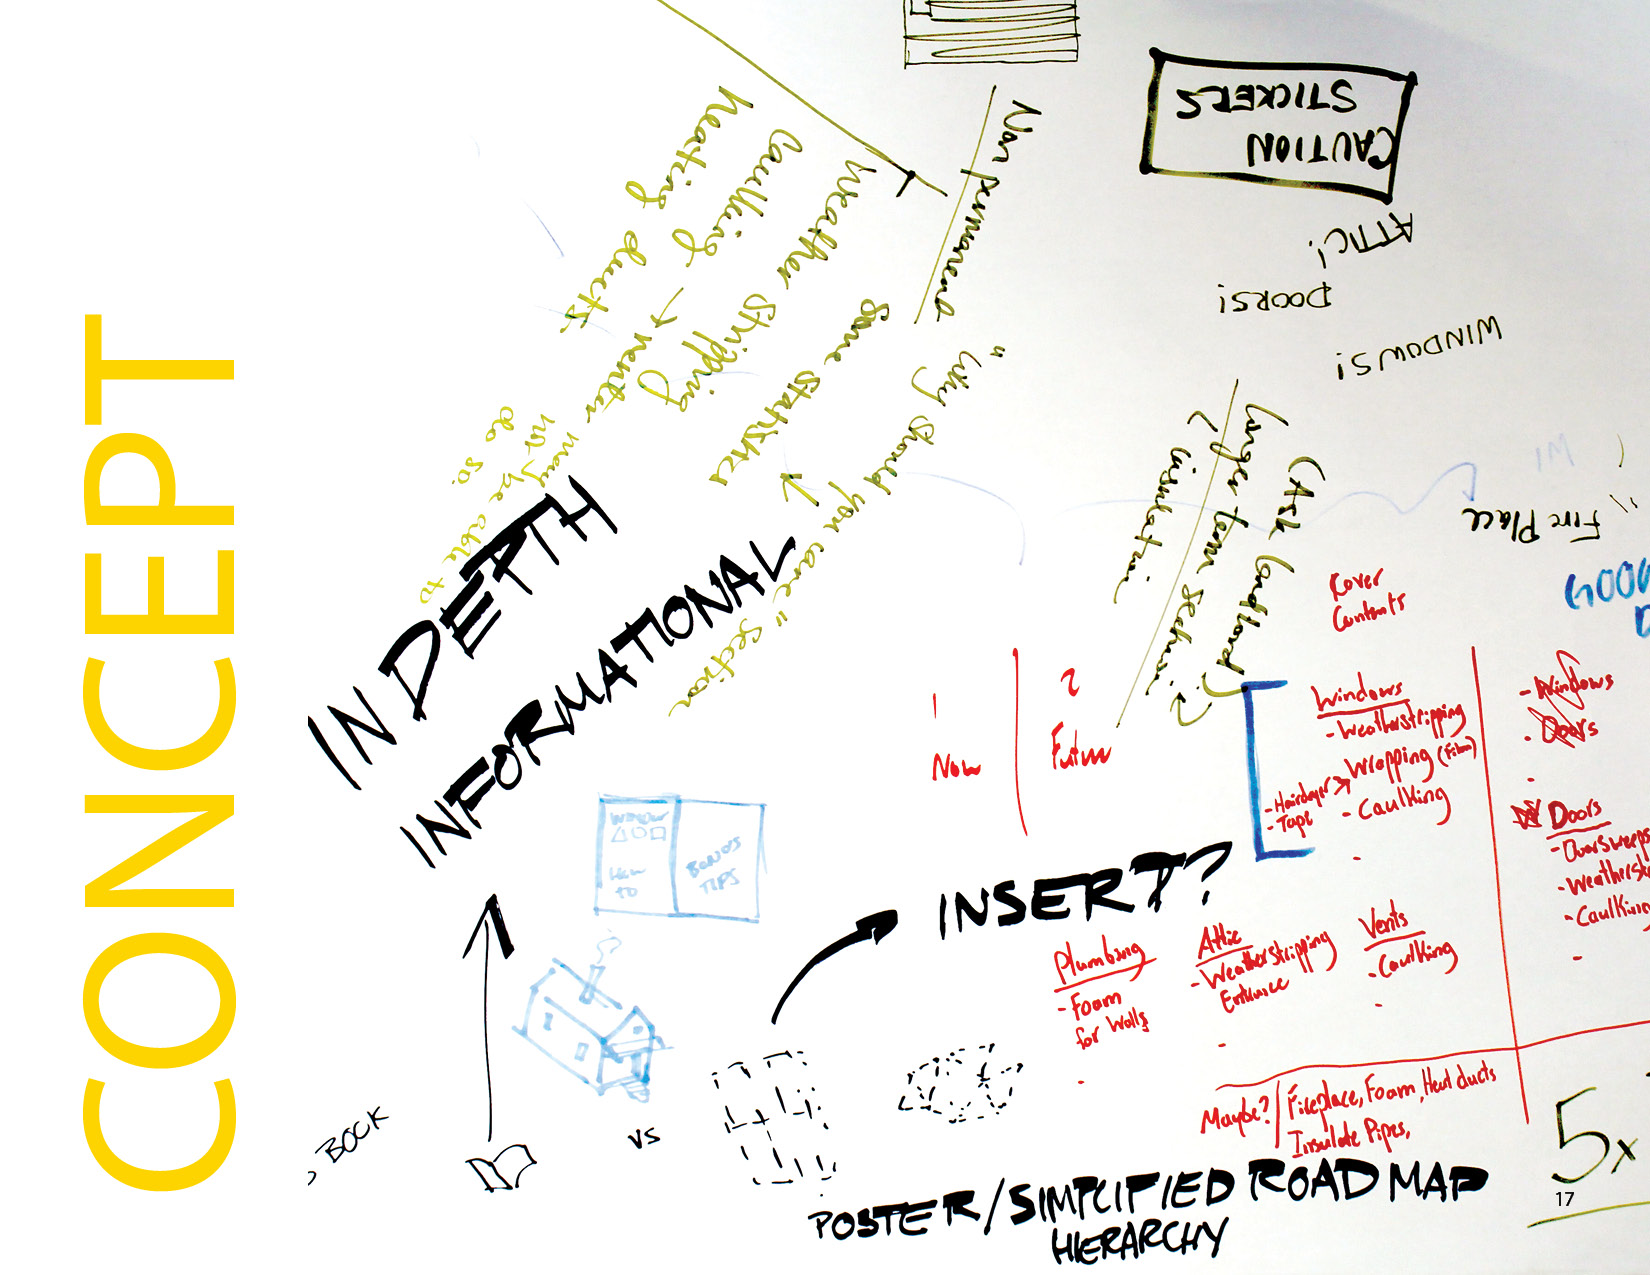 CONCEPT
heating ducts.
Caulking → renter
may be able to
not
do so.
Weather Stripping
Some Statistics
Non permanent
"Why should you care" section
CAUTION
STICKERS
ATTIC!
DOORS!
WINDOWS!
Fire Place
(Ask landlord?)
Longer term sections?
insulation
IN DEPTH
INFORMATIONAL
WINDOW
HOW
TO
BONUS
TIPS
1
Now
2
Future
Cover
Contents
Windows
- Weatherstripping
Wrapping (Film)
- Hairdryer
- Tape
- Caulking
- Windows
- Doors
Doors
- Doorsweeps
- Weatherst
- Caulking
INSERT?
Plumbing
- Foam
for Walls
Attic
- Weather Stripping
Entrance
Vents
- Caulking
Maybe?
Fireplace, Foam, Heat ducts
Insulate Pipes,
BOOK
VS
POSTER/SIMPLIFIED ROAD MAP
HIERARCHY
5x
17